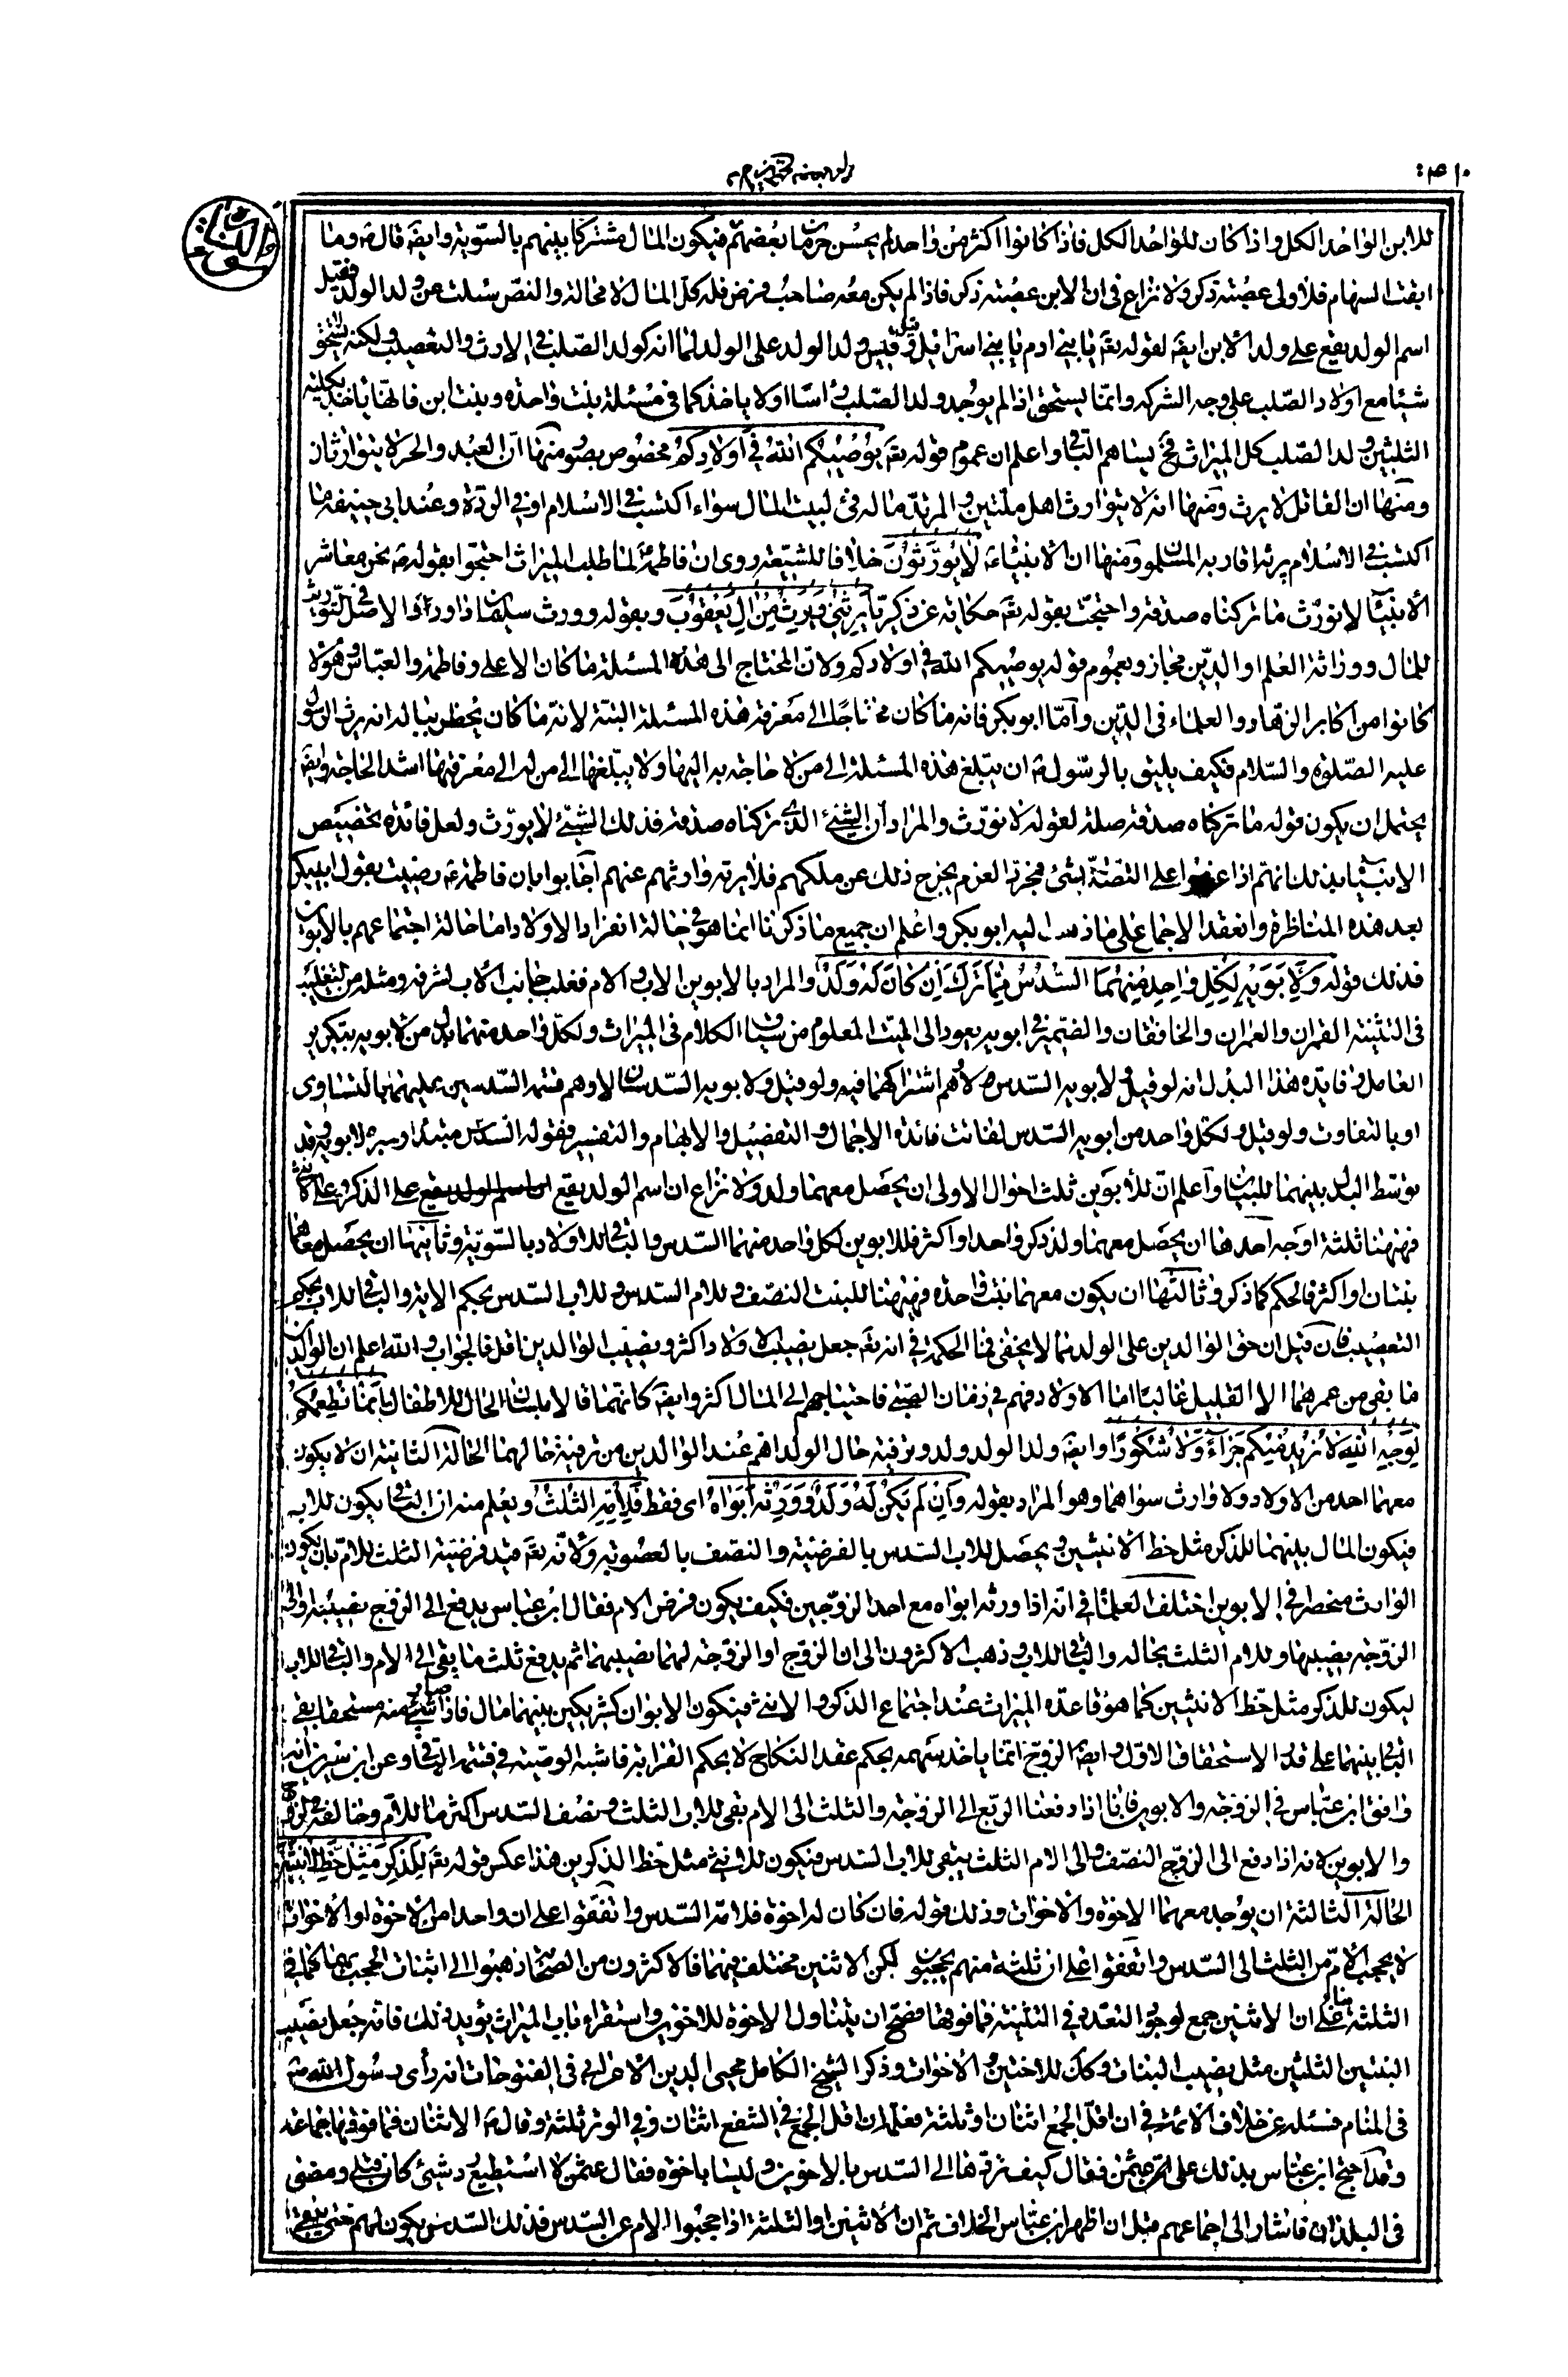 للابن الواحد الكل واذا كان للواحد الكل فاذا كانوا اكثر من واحد لم يحسن حرمان بعضهم فيكون المال مشتركا بينهم بالسوية وايضا قال وما
ابقت السهام فلاولى عصبة ذكر ولا نزاع في ان الابن عصبة ذكر فاذا لم يكن معه صاحب فرض فله كل المال لا محالة والنص سئلت عن ولد الولد فقيل
اسم الولد يقع على ولد الابن ايضا لقوله تع يا بني ادم يا بني اسرائيل وقيل قيس ولد الولد على الولد لما انه كولد الصلب في الارث والتعصيب ولكنه لا يستحق
شيئا مع اولاد الصلب على وجه الشركة وانما يستحق اذا لم يوجد ولد الصلب راسا او لا ياخذ كما في مسئلة بنت واحدة وبنت ابن فانها ياخذ بكلية
الثلثين ولد الصلب كل الميراث فح يساهم الباقي واعلم ان عموم قوله تع يُوصِيكُمُ اللهُ فِي أَوْلَادِكُمْ مخصوص بصور منها ان العبد والحر لا يتوارثان
ومنها ان القاتل لا يرث ومنها انه لا يتوارث اهل ملتين والمرتد ماله فئ لبيت المال سواء اكتسب في الاسلام او في الردة وعند ابي حنيفة ما
اكتسب في الاسلام يرثه اقاربه المسلمون ومنها ان الانبياء لَا يُورَثُونَ خلافا للشيعة روى ان فاطمة لما طلب الميراث احتجوا بقوله نحن معاشر
الانبياء لا نورث ما تركناه صدقة واحتجت بقوله تع حكاية عن زكريا يَرِثُنِي وَيَرِثُ مِنْ آلِ يَعْقُوبَ وبقوله وورث سليمان داود اذ الاصل في التوريث
للمال ووراثة العلم او الدين مجاز وبعموم قوله يوصيكم الله في اولادكم ولان المحتاج الى هذه المسئلة ما كان الا علي وفاطمة والعباس وهؤلاء
كانوا من اكابر الزهاد والعلماء في الدين واما ابو بكر فانه ما كان محتاجا الى معرفة هذه المسئلة البتة لانه ما كان يخطر بباله انه يرث الرسول
عليه الصلوة والسلام فكيف يليق بالرسول ان يبلغ هذه المسئلة الى من لا حاجة به اليها ولا يبلغها الى من له الى معرفتها اشد الحاجة وايضا
يحتمل ان يكون قوله ما تركناه صدقة صلة لقوله لا نورث والمراد ان الشيء الذي تركناه صدقة فذلك الشيئ لا يورث ولعل فائدة تخصيص
الانبياء بذلك انهم اذا عزموا على التصدق بشئ فمجرد العزم يخرج ذلك عن ملكهم فلا يرثه وارثهم عنهم اجابوا بان فاطمة رضيت بقول ابي بكر
بعد هذه المناظرة وانعقد الاجماع على ما ذهب اليه ابو بكر واعلم ان جميع ما ذكرنا انما هو في حالة انفراد الاولاد اما حالة اجتماعهم بالابوين
فذلك قوله وَلِأَبَوَيْهِ لِكُلِّ وَاحِدٍ مِنْهُمَا السُّدُسُ مِمَّا تَرَكَ إِنْ كَانَ لَهُ وَلَدٌ والمراد بالابوين الاب والام فغلب جانب الاب لشرفه ومثله من التغليب
في التثنية القمران والعمران والخافقان والضمير في ابويه يعود الى الميت المعلوم من سياق الكلام في الميراث ولكل واحد منهما بدل من لابويه بتكرير
العامل وفائدة هذا البدل انه لو قيل لابويه السدس لاوهم اشتراكهما فيه ولو قيل ولابويه السدسان لاوهم قسمة السدسين عليهما بالتساوي
او بالتفاوت ولو قيل ولكل واحد من ابويه السدس لفاتت فائدة الاجمال والتفصيل والابهام والتفسير فقوله السدس مبتدا وخبره لابويه وقد
توسط البدل بينهما للبيان واعلم ان للأبوين ثلث احوال الاولى ان يحصل معهما ولد ولا نزاع ان اسم الولد يقع على الذكر وعلى الانثى
فههنا ثلثة اوجه احدها ان يحصل معهما ولد ذكر واحد او اكثر فللابوين لكل واحد منهما السدس والباقي للاولاد بالسوية وثانيها ان يحصل معهما
بنتان او اكثر فالحكم كما ذكر وثالثها ان يكون معهما بنت واحدة فههنا للبنت النصف وللام السدس وللاب السدس بحكم الاية والباقي للاب بحكم
التعصيب فان قيل ان حق الوالدين على الولد مما لا يخفى فما الحكمة في انه تع جعل نصيب الاولاد اكثر ونصيب الوالدين اقل فالجواب والله اعلم ان الوالدين
ما بقى من عمرهما الا القليل غالبا اما الاولاد فهم في زمان الصبى فاحتياجهم الى المال اكثر وايضا كانهما قالا بلسان الحال للاطفال إِنَّمَا نُطْعِمُكُمْ
لِوَجْهِ اللهِ لَا نُرِيدُ مِنْكُمْ جَزَاءً وَلَا شُكُورًا وايضا ولد الولد ولد وترفية حال الولد اهم عند الوالدين من ترفية حالهما الحالة الثانية ان لا يكون
معهما احد من الاولاد ولا وارث سواهما وهو المراد بقوله وَإِنْ لَمْ يَكُنْ لَهُ وَلَدٌ وَوَرِثَهُ أَبَوَاهُ اى فقط فَلِأُمِّهِ الثُّلُثُ ويعلم منه ان الباقي يكون للاب
فيكون المال بينهما للذكر مثل حظ الانثيين ويحصل للاب السدس بالفرضية والنصف بالعصوبة ولانه تع قيد فرضية الثلث للام بان يكون
الوارث منحصر في الابوين اختلف العلماء في انه اذا ورثه ابواه مع احد الزوجين فكيف يكون فرض الام فقال ابن عباس يدفع الى الزوج نصيبه والى
الزوجة نصيبها وللام الثلث بحاله والباقي للاب وذهب الاكثرون الى ان الزوج او الزوجة لهما نصيبهما ثم يدفع ثلث ما بقى الى الام والباقي للاب
ليكون للذكر مثل حظ الانثيين كما هو قاعدة الميراث عند اجتماع الذكر والانثى فيكون الابوان كشريكين بينهما مال فاذا صار شيئ منه مستحقا بقى
الباقي بينهما على قدر الاستحقاق الاول وايضا الزوج انما ياخذ سهمه بحكم عقد النكاح لا بحكم القرابة فاشبه الوصية في قسمة الباقي وعن ابن سيرين انه
وافق ابن عباس في الزوجة والابوين فانا اذا دفعنا الربع الى الزوجة والثلث الى الام بقى للاب الثلث ونصف السدس اكثر مما للام وخالفه في الزوج
والابوين لانه اذا دفع الى الزوج النصف والى الام الثلث يبقى للاب السدس فيكون للانثى مثل حظ الذكرين هذا عكس قوله تع لِلذَّكَرِ مِثْلُ حَظِّ الْأُنْثَيَيْنِ
الحالة الثالثة ان يوجد معهما الاخوة والاخوات وذلك قوله فان كان له اخوة فلامه السدس واتفقوا على ان واحدا من الاخوة او الاخوات
لا يحجب الام من الثلث الى السدس واتفقوا على ان ثلثة منهم يحجبون لكن الاثنين مختلف فيهما فالاكثرون من الصحابة ذهبوا الى اثبات الحجب بهما كما في
الثلثة بناء على ان الاثنين جمع لوجود التعدد في التثنية فما فوقها فصح ان يتناول الاخوة للاخوين واستقراء باب الميراث يؤيد ذلك فانه جعل نصيب
البنتين الثلثين مثل نصيب البنات وكذلك للاختين والاخوات وذكر الشيخ الكامل محيى الدين الاعرابي في الفتوحات انه رأى رسول الله
في المنام فسئله عن خلاف الائمة في ان اقل الجمع اثنان او ثلثة فعلمه ان اقل الجمع في الشفع اثنان وفي الوتر ثلثة وقال الاثنان فما فوقها جماعة
وقد احتج ابن عباس بذلك على عثمن فقال كيف تردها الى السدس بالاخوين وليسا باخوة فقال عثمن لا استطيع رد شيئ كان قبلي ومضى
في البلدان فاشار الى اجماعهم قبل ان اظهر ابن عباس الخلاف ثم ان الاثنين او الثلثة اذا حجبوا الام عن السدس فذلك السدس يكون لهم حتى يبقى